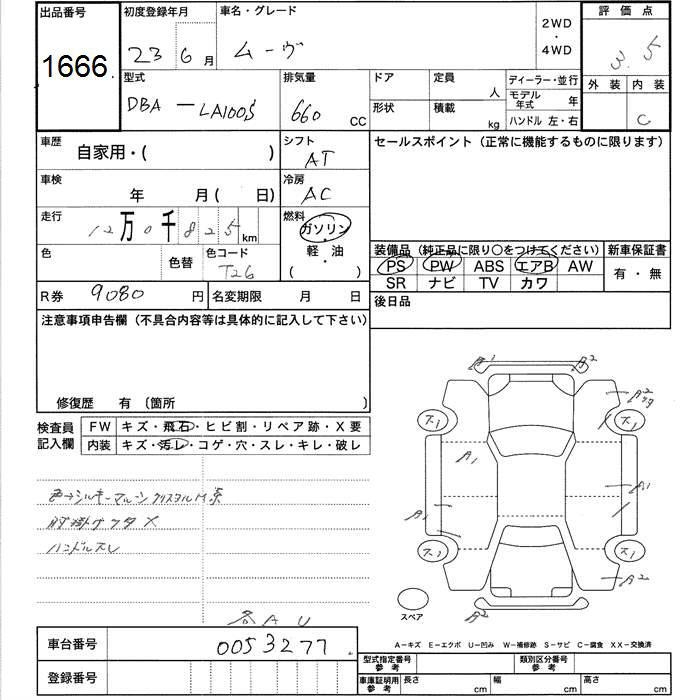 出品番号 初度登録年月 車名・グレード 2WD・4WD 評価点
1666 23 6月 ムーヴ 3.5
型式 排気量 ドア 定員 人 ディーラー・並行 外装 内装
DBA-LA100S 660 CC 形状 積載 kg モデル年式 年 C
ハンドル 左・右
車歴 自家用・( ) シフト AT セールスポイント(正常に機能するものに限ります)
車検 年 月( 日) 冷房 AC
走行 12万0千825km 燃料 ガソリン・軽・油( )
色 色替 色コード T26 装備品(純正品に限り○をつけてください) 新車保証書
PS PW ABS エアB AW 有・無
SR ナビ TV カワ
R券 9080円 名変期限 月 日 後日品
注意事項申告欄(不具合内容等は具体的に記入して下さい)
修復歴 有 〔箇所 〕
検査員記入欄 FW キズ・飛石・ヒビ割・リペア跡・X要
内装 キズ・汚レ・コゲ・穴・スレ・キレ・破レ
色→シルキーマルーンクリスタルM
肘掛けフタX
ハンドルスレ
各AU
A1 A2
A2
ス1 ス1
A1
A1 A1
ス1 ス1
A2
A2
スペア
A−キズ E−エクボ U−凹み W−補修跡 S−サビ C−腐食 XX−交換済
車台番号 0053277
登録番号
型式指定番号参考 類別区分番号参考
車庫証明用参考 長さ cm 幅 cm 高さ cm